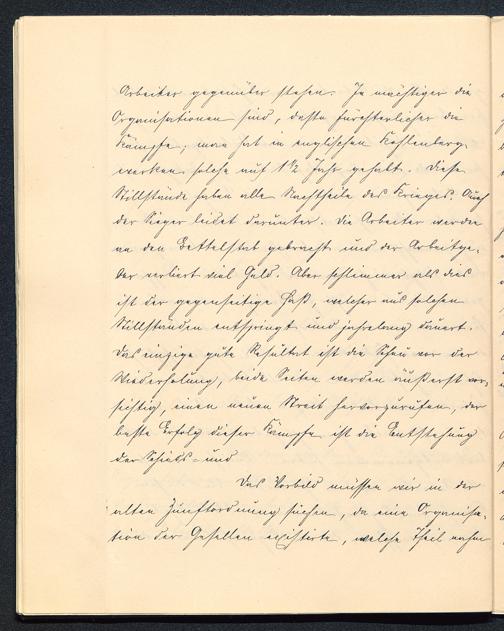 Arbeiter gegenüber stehen. Je mächtiger die
Organisationen sind, desto fürchterlicher die
Kämpfe, man hat in englischen Kohlenberg-
werken solche auf 1½ Jahr gehabt. Diese
Stillstände haben alle Nachtheile des Krieges. Auch
der Sieger leidet darunter. Die Arbeiter werden
an den Bettelstab gebracht und der Arbeitge-
ber verliert viel Geld. Aber schlimmer als dies
ist der gegenseitige Haß, welcher aus solchen
Stillständen entspringt und jahrelang dauert.
Das einzige gute Resultat ist die Scheu vor der
Wiederholung, beide Seiten werden äußerst vor-
sichtig, einen neuen Streit hervorzurufen, der
beste Erfolg dieser Kämpfe ist die Entstehung
der Schieds- und
Das Vorbild müssen wir in der
alten Zunftordnung suchen, da eine Organisa-
tion der Gesellen existirte, welche Theil nahm